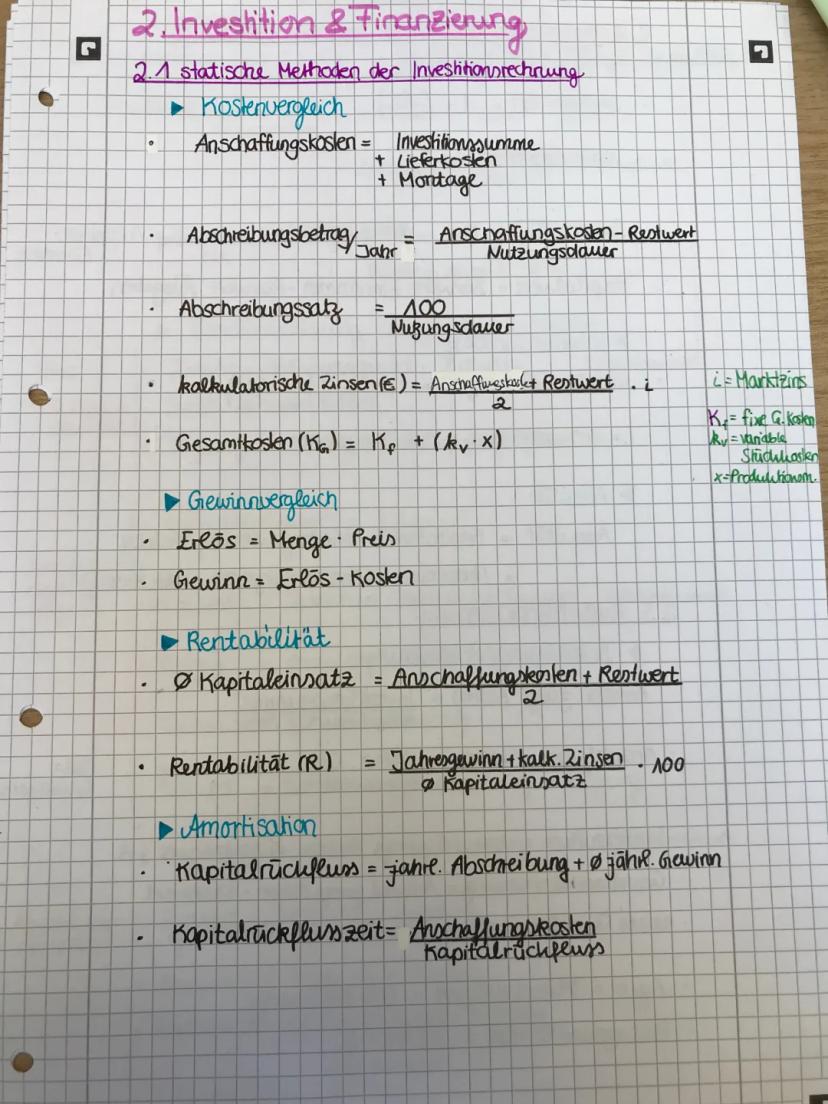 2. Investition & Finanzierung
2.1 statische Methoden der Investitionsrechnung
▶ Kostenvergleich
• Anschaffungskosten = Investitionssumme
+ Lieferkosten
+ Montage
• Abschreibungsbetrag/Jahr = Anschaffungskosten - Restwert
Nutzungsdauer
• Abschreibungssatz = 100
Nutzungsdauer
• kalkulatorische Zinsen (€) = Anschaffungskost. + Restwert · i
2
i = Marktzins
• Gesamtkosten (KG) = Kf + (kv · x)
Kf = fixe G. Kosten
kv = variable
Stückkosten
x = Produktionsm.
▶ Gewinnvergleich
• Erlös = Menge · Preis
• Gewinn = Erlös - Kosten
▶ Rentabilität
• Ø Kapitaleinsatz = Anschaffungskosten + Restwert
2
• Rentabilität (R) = Jahresgewinn + kalk. Zinsen · 100
Ø Kapitaleinsatz
▶ Amortisation
• Kapitalrückfluss = jährl. Abschreibung + Ø jährl. Gewinn
• Kapitalrückflusszeit = Anschaffungskosten
Kapitalrückfluss